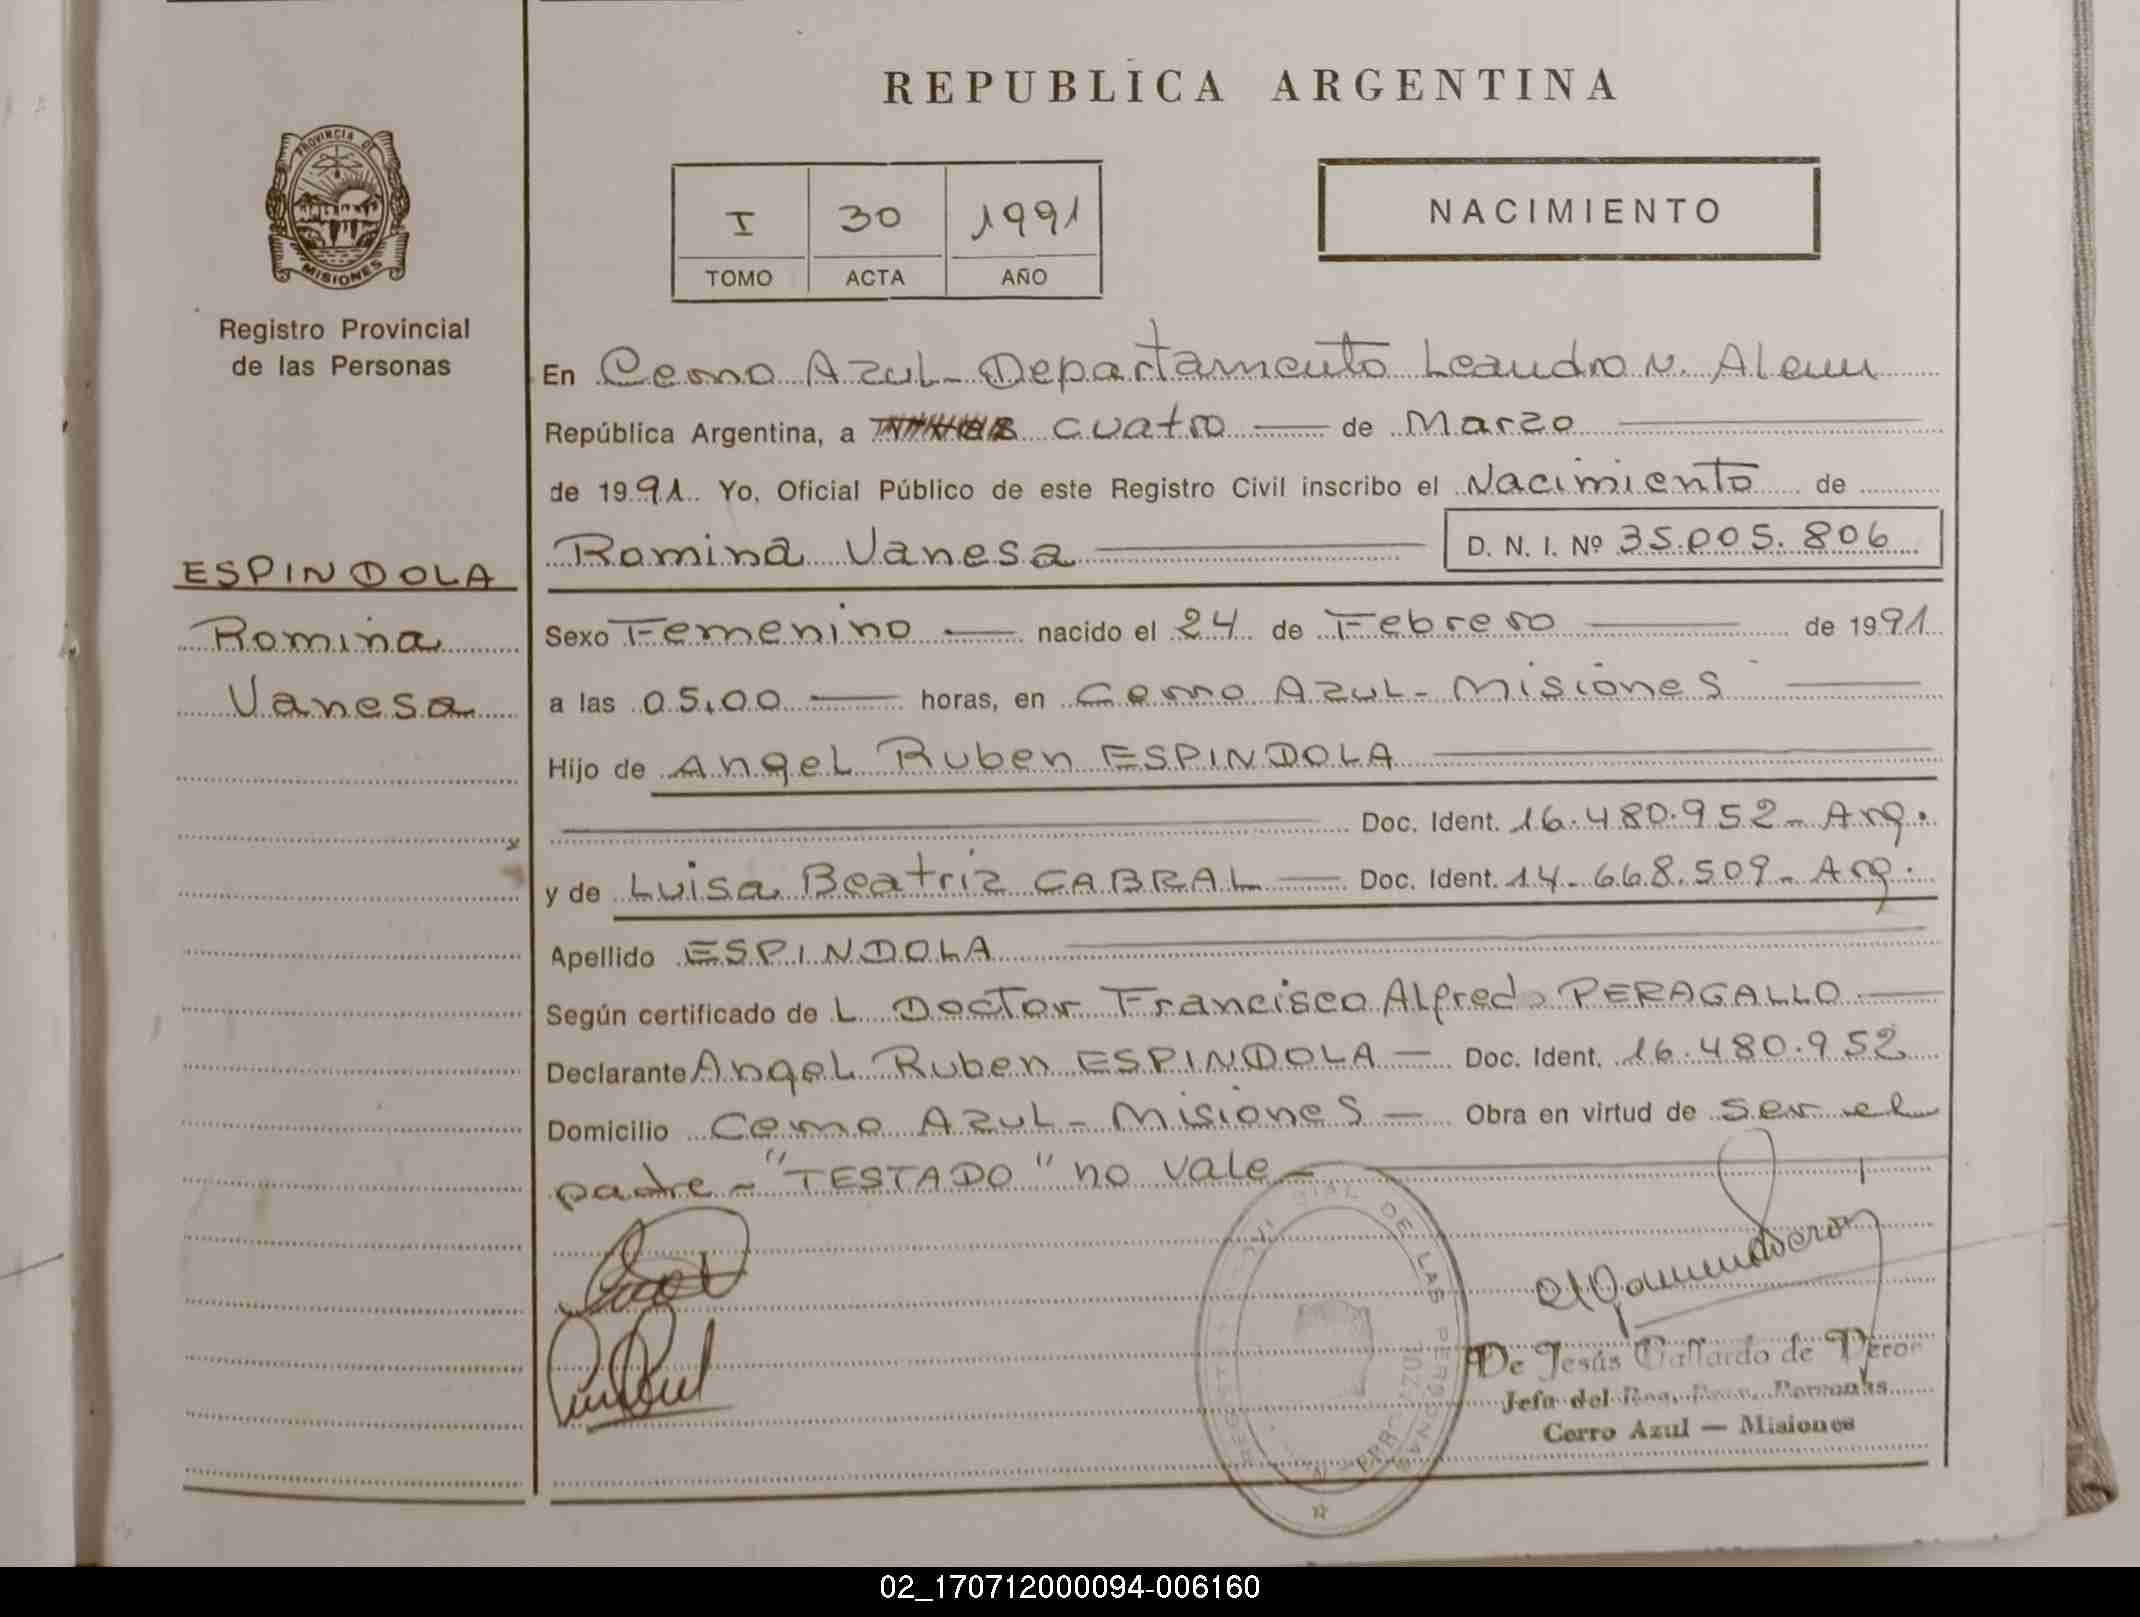 REPUBLICA ARGENTINA
PROVINCIA DE
MISIONES
Registro Provincial
de las Personas
I 30 1991
TOMO ACTA AÑO
NACIMIENTO
En Cerro Azul - Departamento Leandro N. Alem
República Argentina, a cuatro — de Marzo
de 1991. Yo, Oficial Público de este Registro Civil inscribo el Nacimiento de
Romina Vanesa — D. N. I. Nº 35.005.806
ESPINDOLA
Romina
Vanesa
Sexo Femenino — nacido el 24 de Febrero — de 1991
a las 05,00 — horas, en Cerro Azul - Misiones —
Hijo de Angel Ruben ESPINDOLA —
— Doc. Ident. 16.480.952 - Arg.
y de Luisa Beatriz CABRAL — Doc. Ident. 14.668.509 - Arg.
Apellido ESPINDOLA —
Según certificado de L Doctor Francisco Alfredo PERAGALLO —
Declarante Angel Ruben ESPINDOLA — Doc. Ident. 16.480.952
Domicilio Cerro Azul - Misiones — Obra en virtud de ser el
padre - "TESTADO" no vale —
DE LAS PERSONAS
CERRO AZUL
De Jesús Gallardo de Veron
Jefa del Reg. Prov. Personas
Cerro Azul — Misiones
02_170712000094-006160